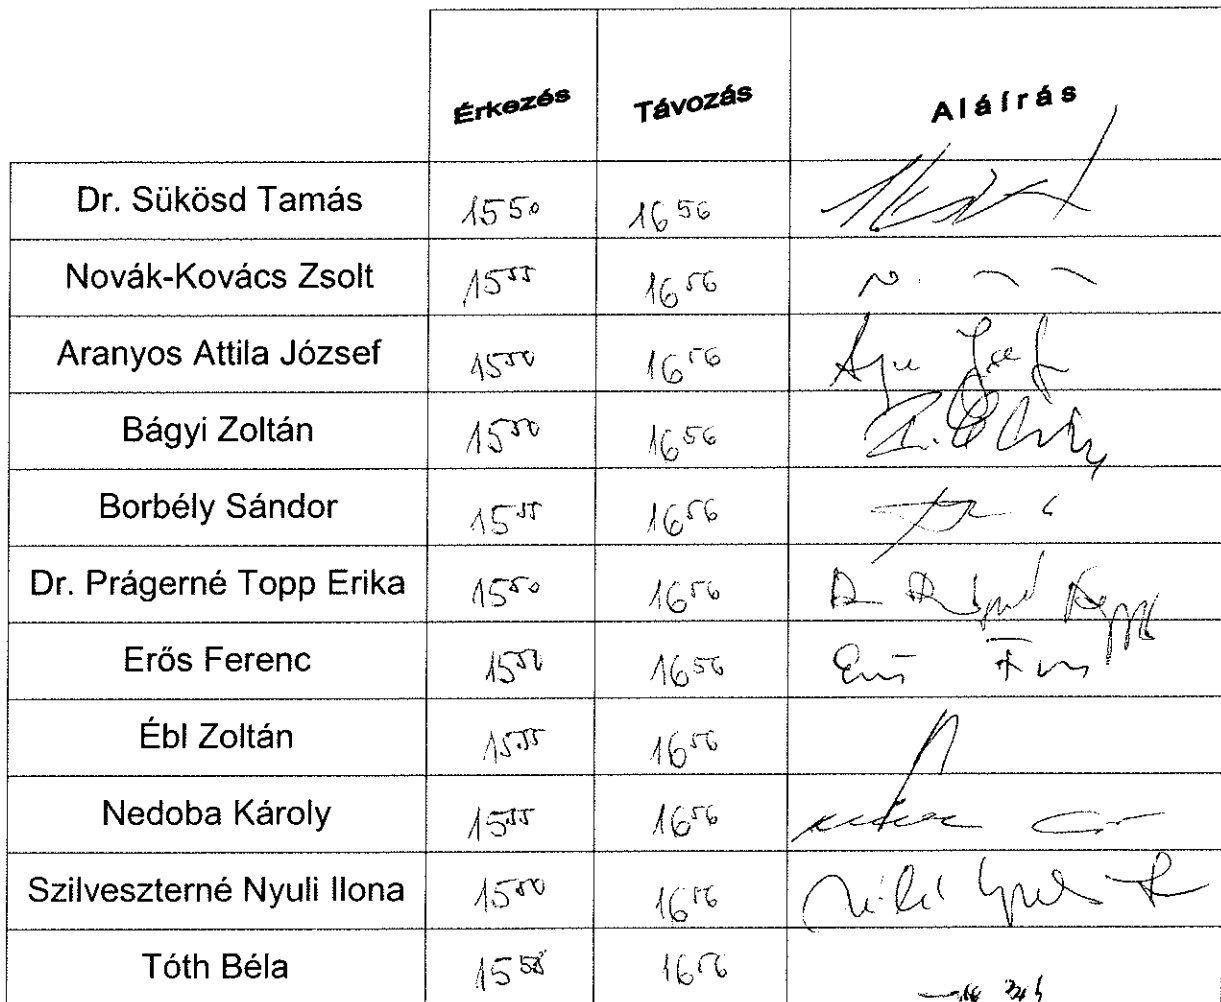 Érkezés Távozás Aláírás
Dr. Sükösd Tamás 15 50 16 56
Novák-Kovács Zsolt 15 55 16 56
Aranyos Attila József 15 50 16 56
Bágyi Zoltán 15 50 16 56
Borbély Sándor 15 55 16 56
Dr. Prágerné Topp Erika 15 50 16 56
Erős Ferenc 15 50 16 56
Ébl Zoltán 15 55 16 56
Nedoba Károly 15 55 16 56
Szilveszterné Nyuli Ilona 15 50 16 56
Tóth Béla 15 16 56